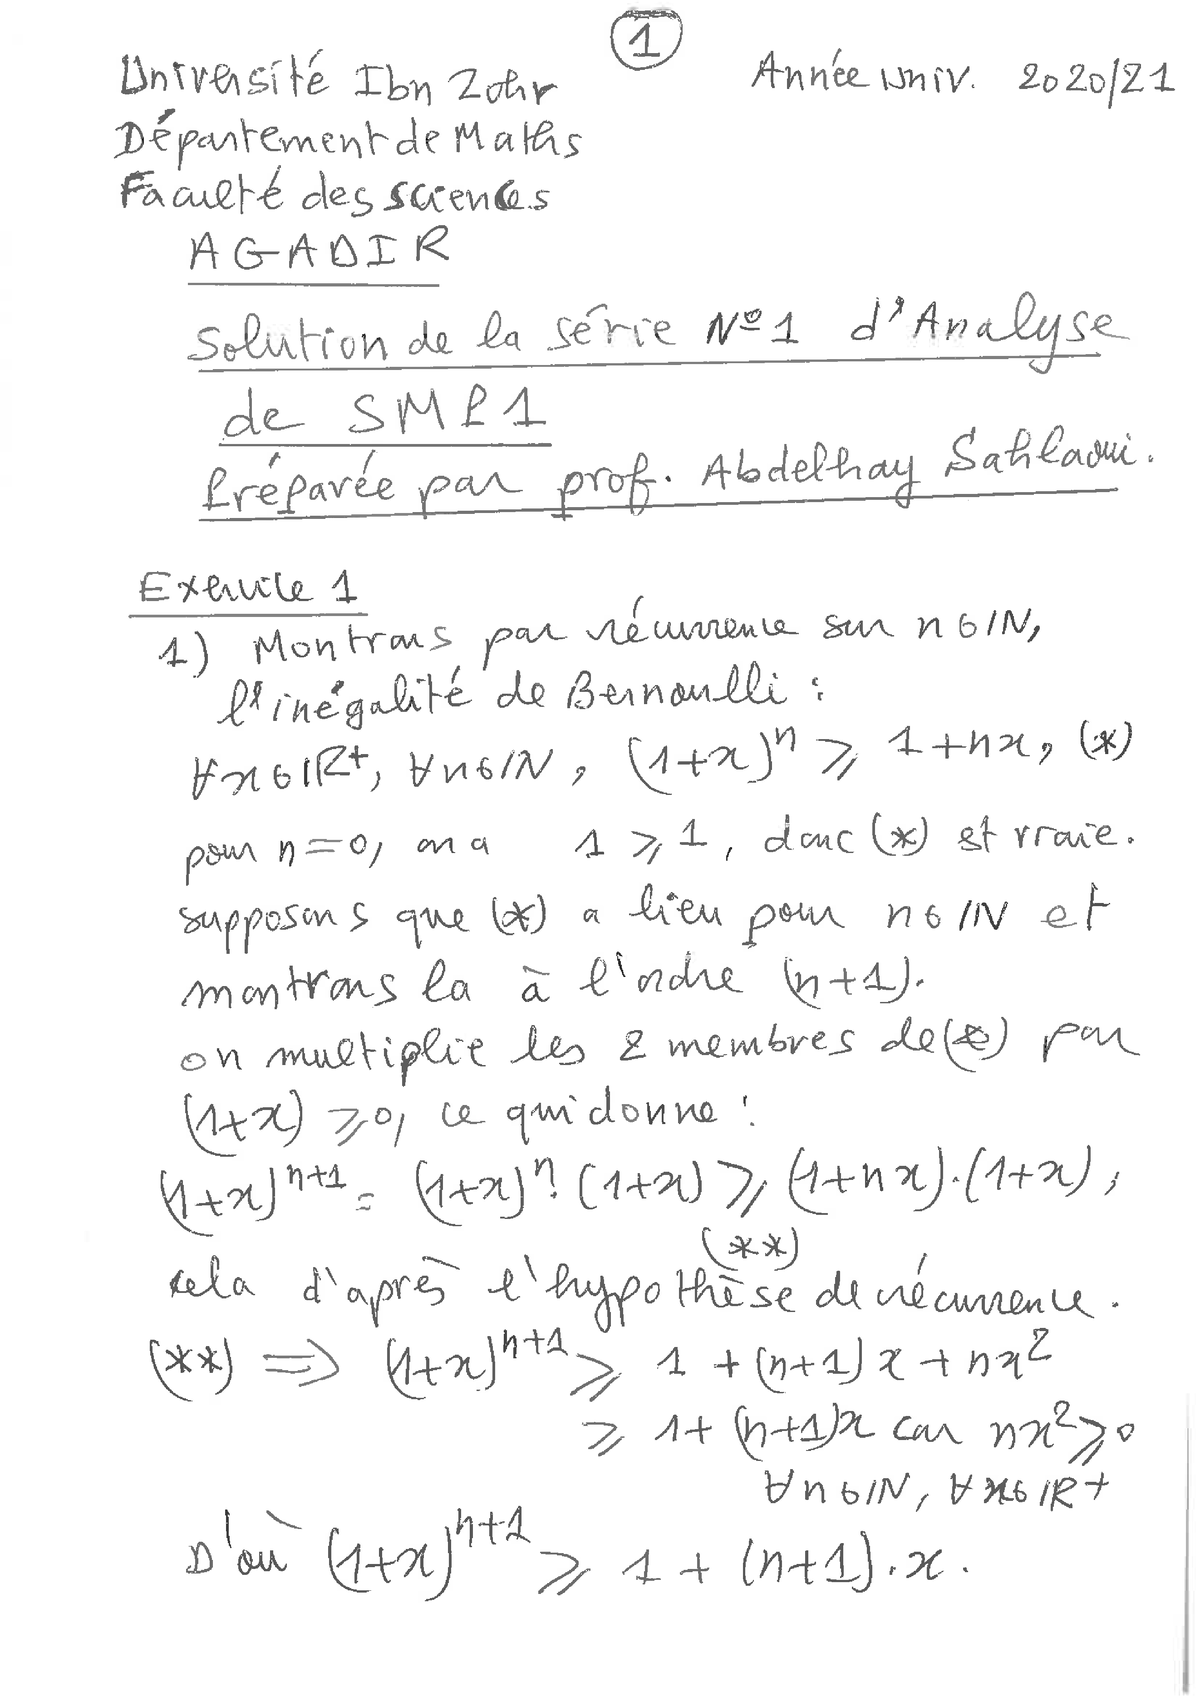 1
Université Ibn Zohr Année univ. 2020/21
Département de Maths
Faculté des sciences
AGADIR
Solution de la série Nº1 d'Analyse
de SMP1
Préparée par prof. Abdelhay Sahlaoui.
Exercice 1
1) Montrons par récurrence sur n∈ℕ,
l'inégalité de Bernoulli :
∀x∈ℝ+, ∀n∈ℕ, (1+x)^n ⩾ 1+nx, (*)
pour n=0, on a 1 ⩾ 1, donc (*) est vraie.
supposons que (*) a lieu pour n∈ℕ et
montrons la à l'ordre (n+1).
on multiplie les 2 membres de (*) par
(1+x) ⩾0, ce qui donne :
(1+x)^{n+1} = (1+x)^n.(1+x) ⩾ (1+nx).(1+x),
(**)
cela d'après l'hypothèse de récurrence.
(**) ⟹ (1+x)^{n+1} ⩾ 1 + (n+1)x + nx²
⩾ 1+ (n+1)x car nx²⩾0
∀n∈ℕ, ∀x∈ℝ+
D'où (1+x)^{n+1} ⩾ 1 + (n+1).x.